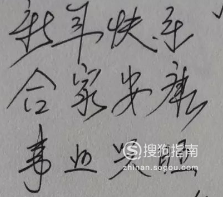 新年快乐
合家安康
事业兴旺
搜狗指南
zhinan.sogou.com